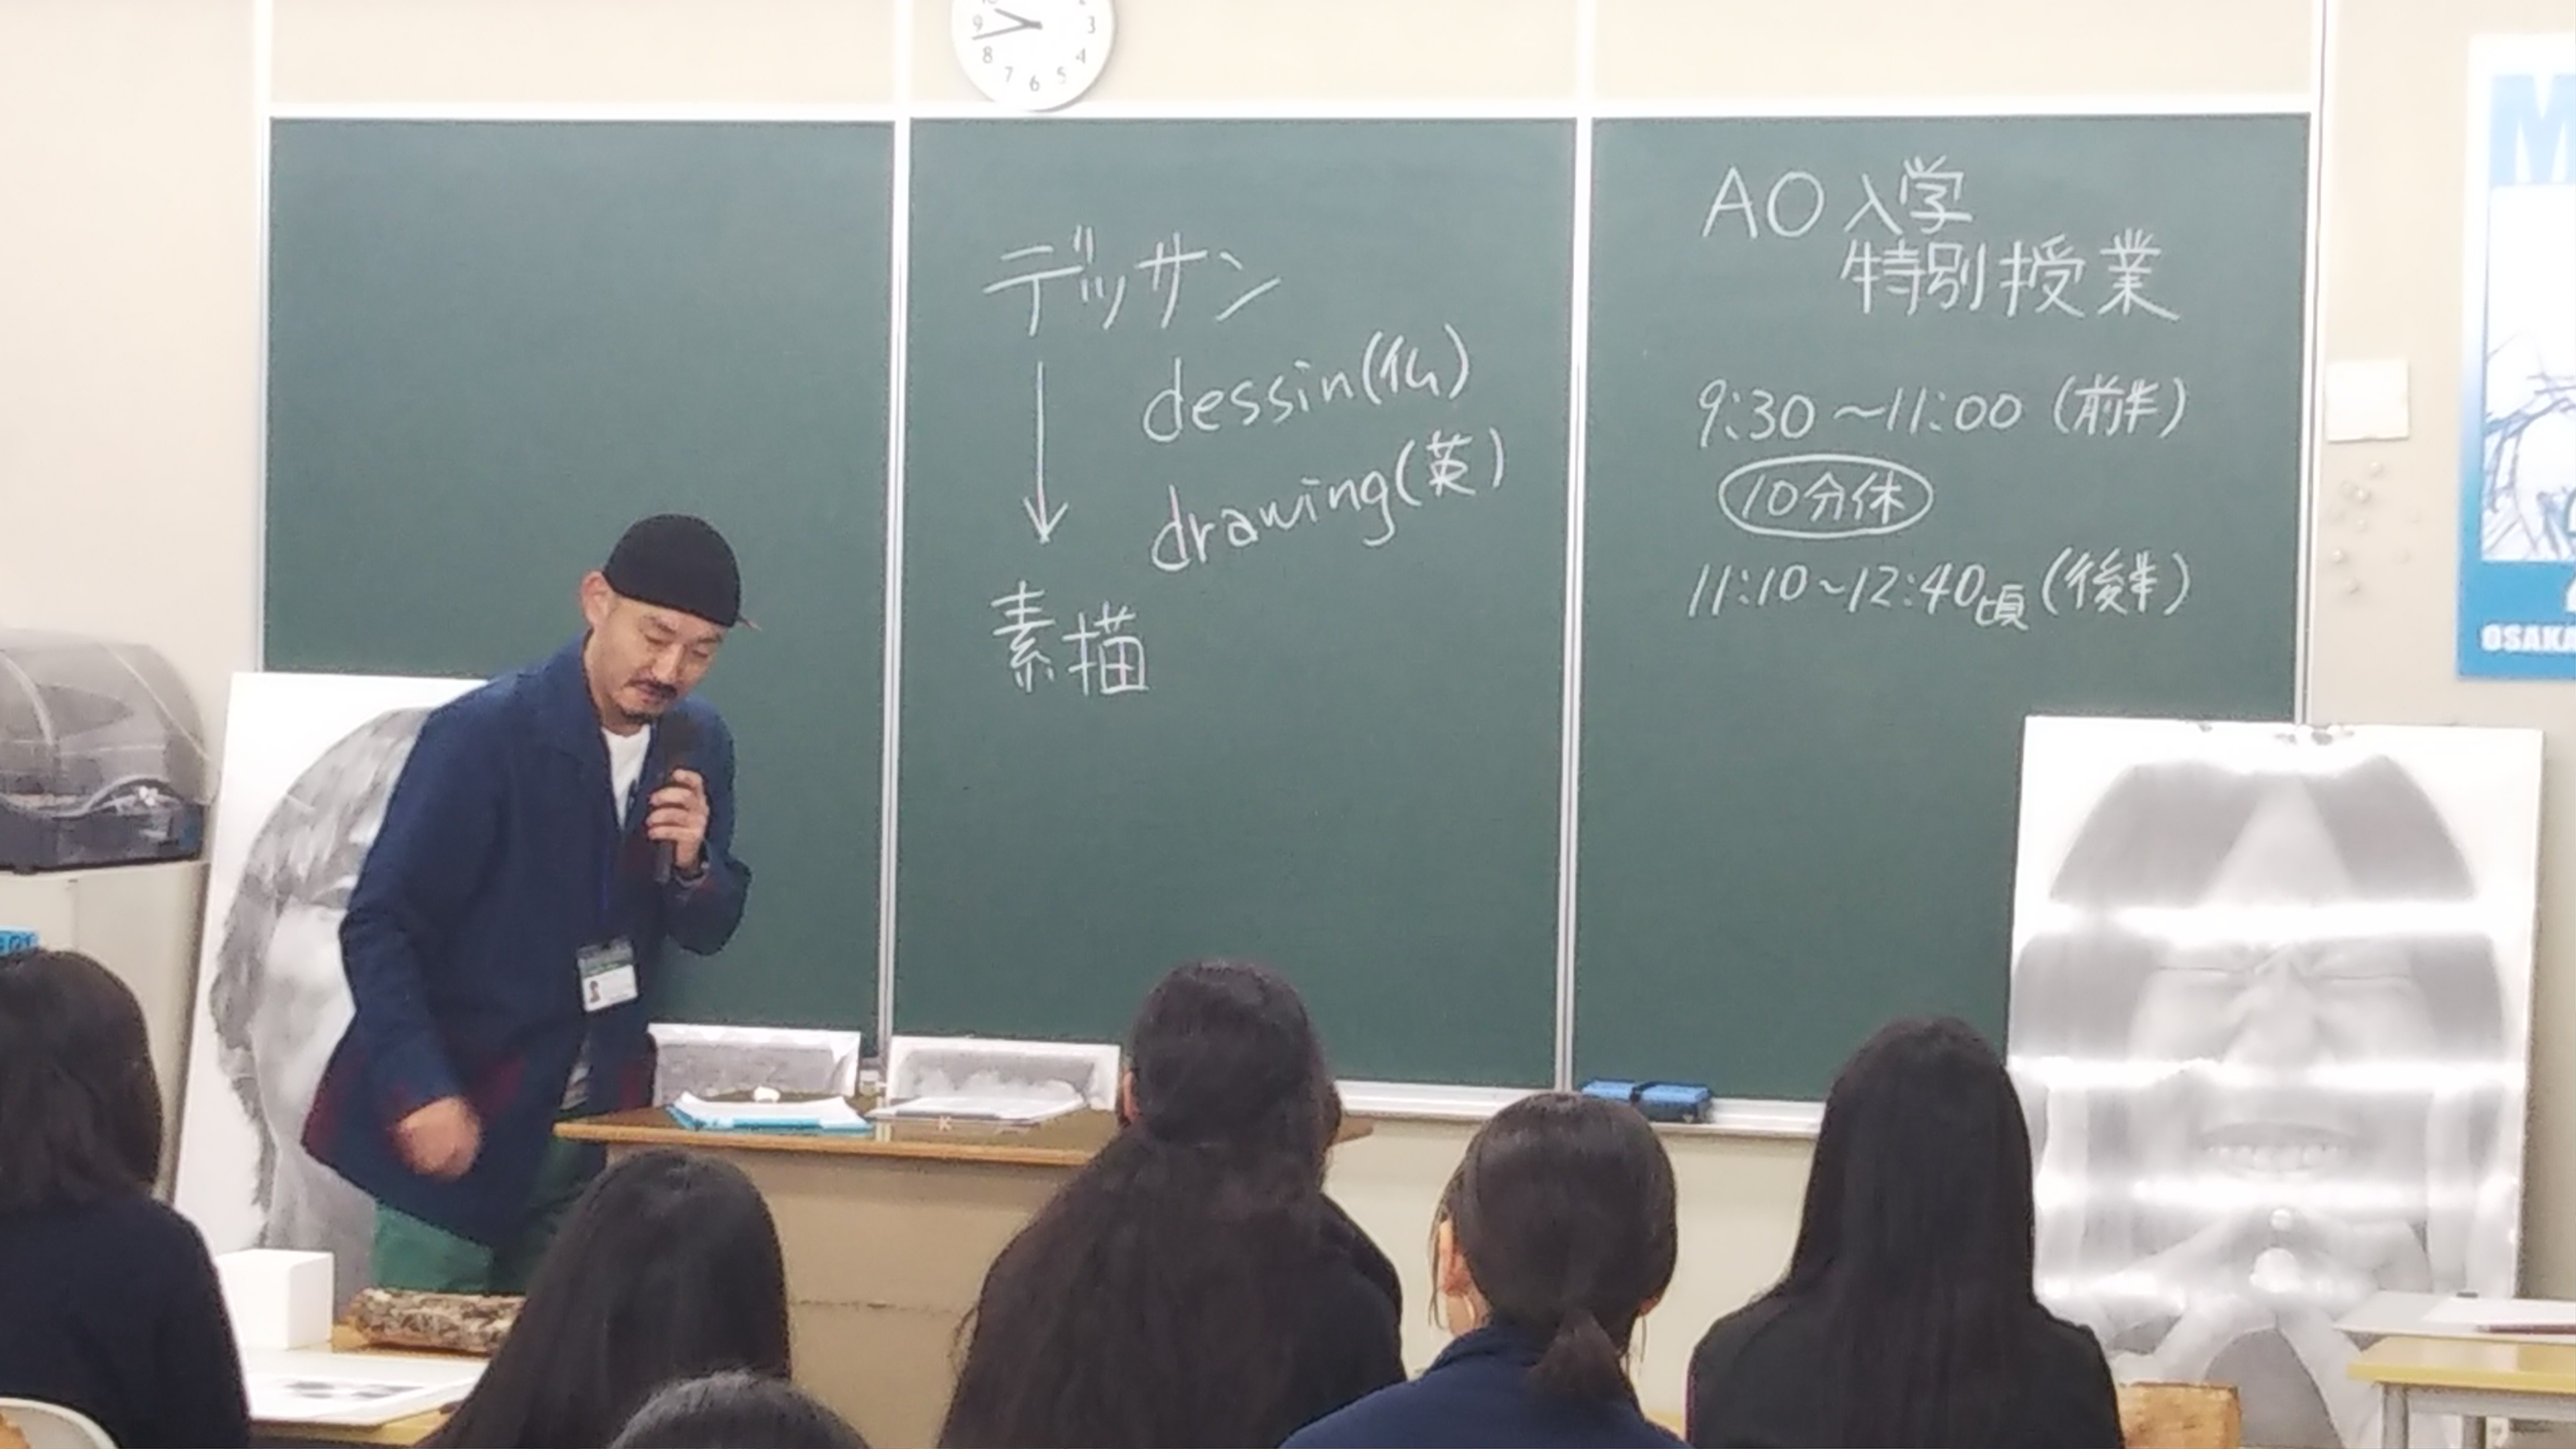 デッサン
dessin(仏)
drawing(英)
素描
AO入学
特別授業
9:30~11:00(前半)
10分休
11:10~12:40頃(後半)
9
8
7
6
5
4
3
M
OSAKA